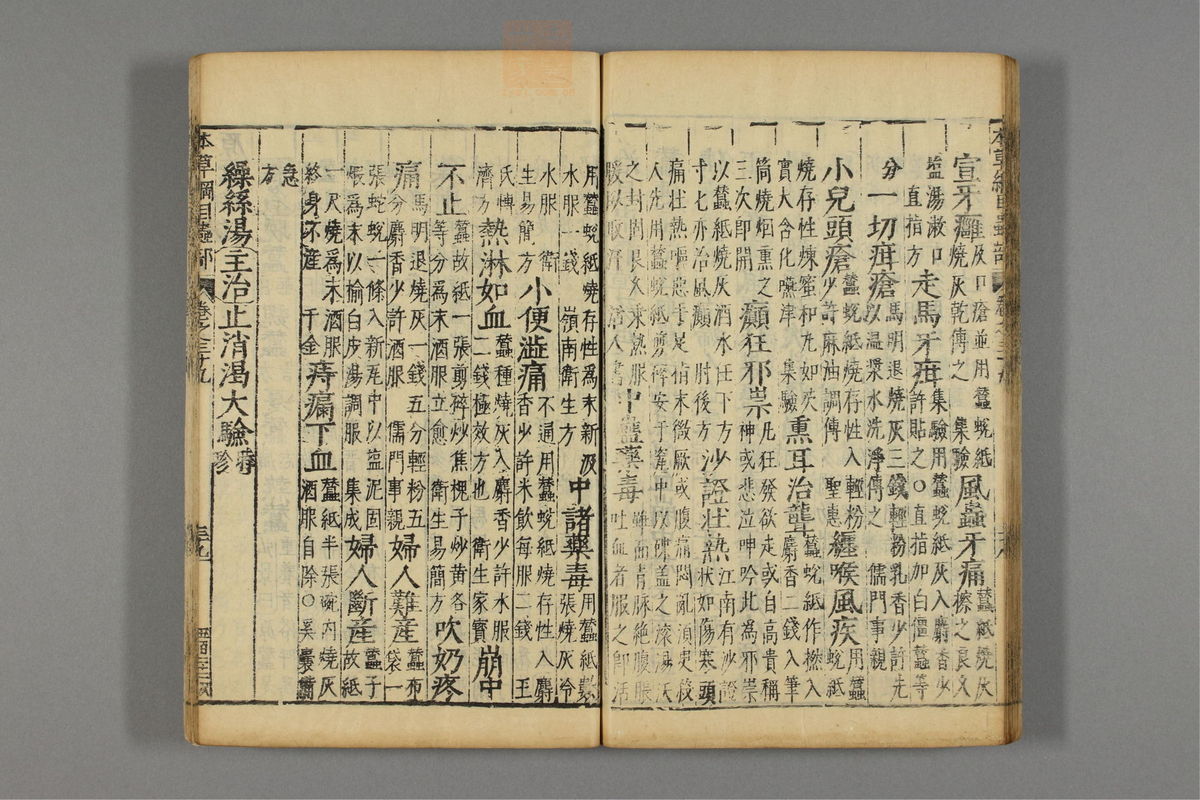 本草綱目蟲部 卷之三十九
宣牙癰及口瘡並用蠶蛻紙燒灰乾傅之 集驗 風蟲牙痛蠶紙燒灰擦之良久
盐湯漱口直指方 走馬牙疳集驗用蠶蛻紙灰入麝香少許貼之○直指加白僵蠶等
分 一切疳瘡馬明退燒灰三錢輕粉乳香少許先以温漿水洗淨傅之 儒門事親
小兒頭瘡蠶蛻紙燒存性入輕粉少許麻油調傅 聖惠 纏喉風疾用蠶蛻紙
燒存性煉蜜和丸如芡實大含化嚥津 集驗 熏耳治聾蠶蛻紙作撚入麝香二錢入筆
筒燒烟熏之三次即開 癲狂邪祟凡狂發欲走或自高貴稱神或悲泣呻吟此為邪祟
以蠶紙燒灰酒水任下方寸匕亦治風癲 肘後方 沙證壯熱江南有沙證狀如傷寒頭
痛壯熱嘔惡手足指末微厥或腹痛悶亂須臾殺人先用蠶蛻紙剪碎安于中以碟盖之滚湯沃
之封固良久乘熱服暖以取汗 活人書 中蠱藥毒雖面青脉絶腹脹吐血者服之即活
用蠶蛻紙燒存性為末新汲水服一錢 嶺南衛生方 中諸藥毒用蠶紙數張燒灰冷
水服 衛生易簡方 小便澁痛不通用蠶蛻紙燒存性入麝香少許米飲每服二錢 王
氏博濟方 熱淋如血蠶種燒灰入麝香少許水服二錢極效方也 衛生家寶 崩中
不止蠶故紙一張剪碎炒焦槐子炒黄各等分為末酒服立愈 衛生易簡方 吹奶疼
痛馬明退燒灰一錢五分輕粉五分麝香少許酒服 儒門事親 婦人難產蠶布袋一
張蛇蛻一條入新瓦中以盐泥固煅為末以榆白皮湯調服 集成 婦人斷産蠶子故紙
一尺燒為末酒服終身不産 千金 痔漏下血蠶紙半張碗内燒灰酒服自除○奚囊備
急方
繰絲湯主治止消渴大驗時珍
本草綱目蟲部 卷之三十九